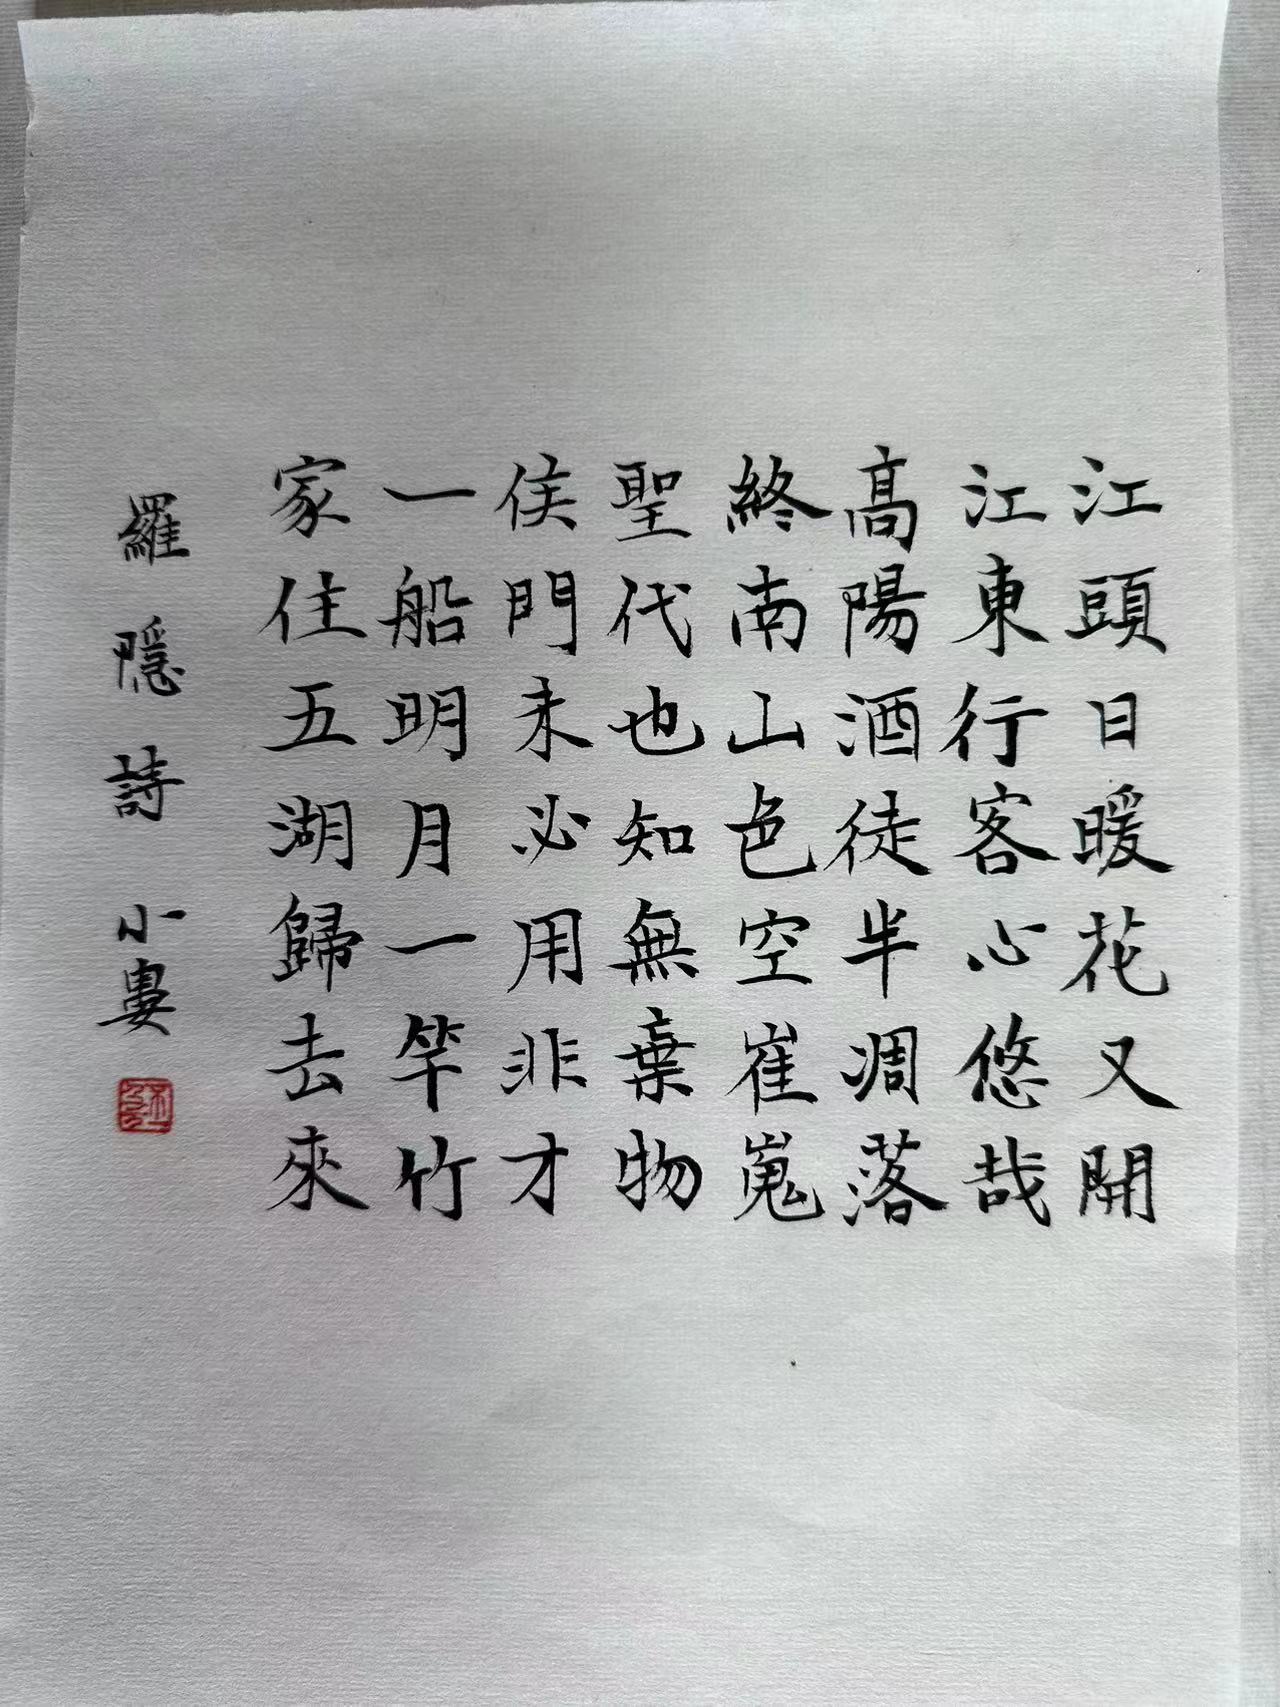 江頭日暖花又開
江東行客心悠哉
高陽酒徒半凋落
終南山色空崔嵬
聖代也知無棄物
侯門未必用非才
一船明月一竿竹
家住五湖歸去來
羅隱詩 小婁